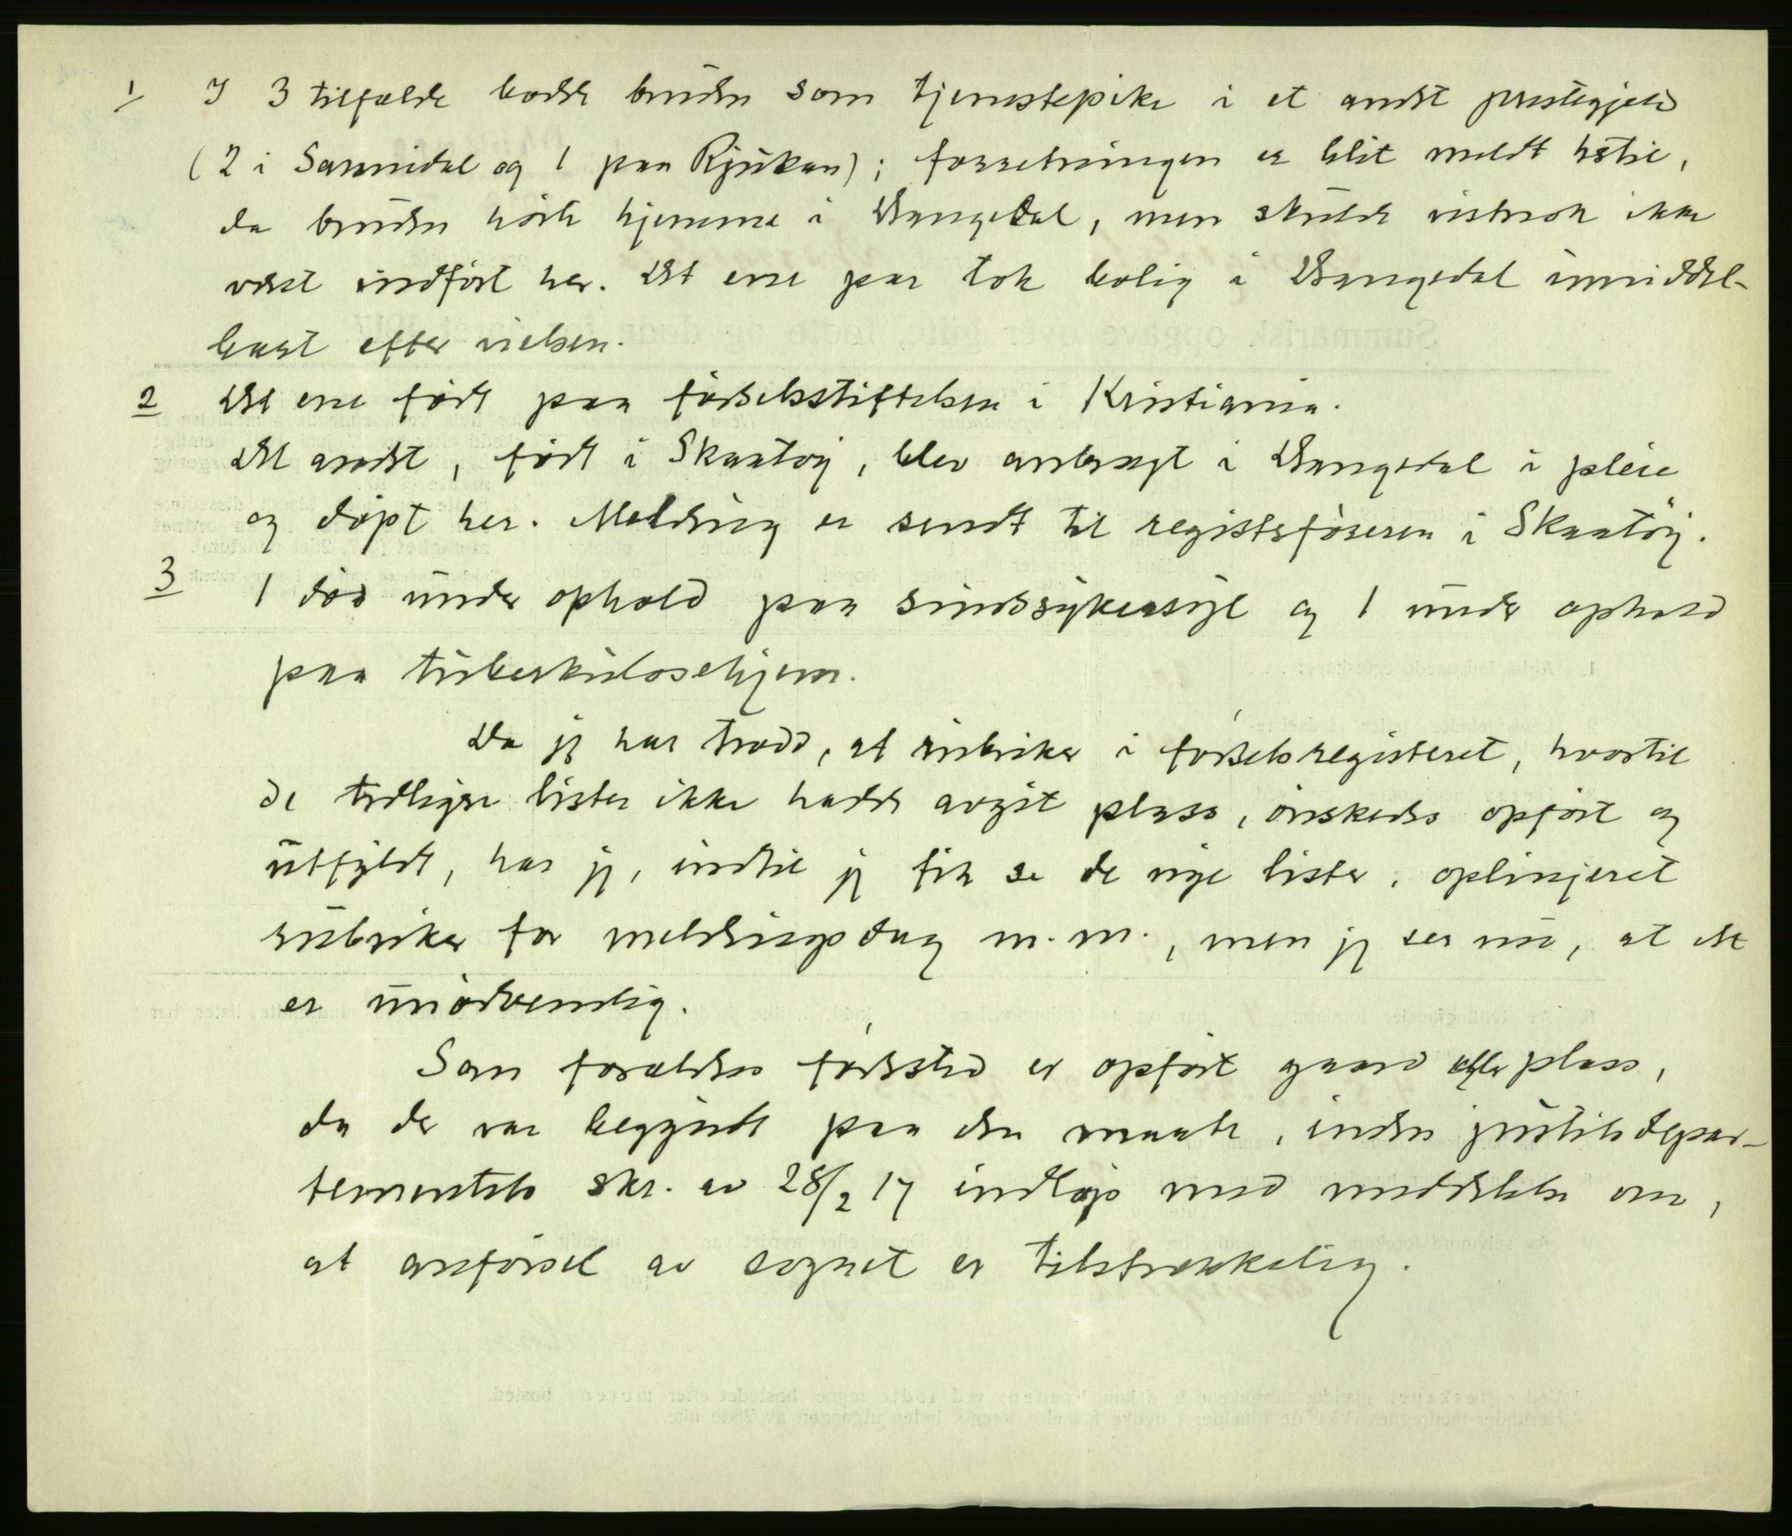 1/ I 3 tilfælde bodde bruden som tjenestepike i et andet prestegjeld
(2 i Sannidal og 1 paa Rjukan); forretningen er blit meldt hertil,
da bruden hørte hjemme i Drangedal, men skulde vistnok ikke
været indført her. Det ene par tok bolig i Drangedal umiddel-
bart efter vielsen.
2 Det ene født paa fødselsstiftelsen i Kristiania.
Det andet, født i Skaatøy, blev anbragt i Drangedal i pleie
og døpt her. Melding er sendt til registerføreren i Skaatøy.
3 1 død under ophold paa sindssykeasyl og 1 under ophold
paa tuberkulosehjem.
Da jeg har trodd, at rubriker i fødselsregisteret, hvortil
de tidligere lister ikke hadde avgit plass, ønskedes opført og
utfyldt, har jeg, indtil jeg fik se de nye lister, oplinjeret
rubriker for meldingsdag m.m., men jeg ser nu, at det
er unødvendig.
Som forældres fødested er opført gaard eller plass,
da der var begyndt paa den maate, inden justitsdepar-
tementets skr. av 28/2 17 indløp med meddelelse om,
at anførsel av sognet er tilstrækkelig.